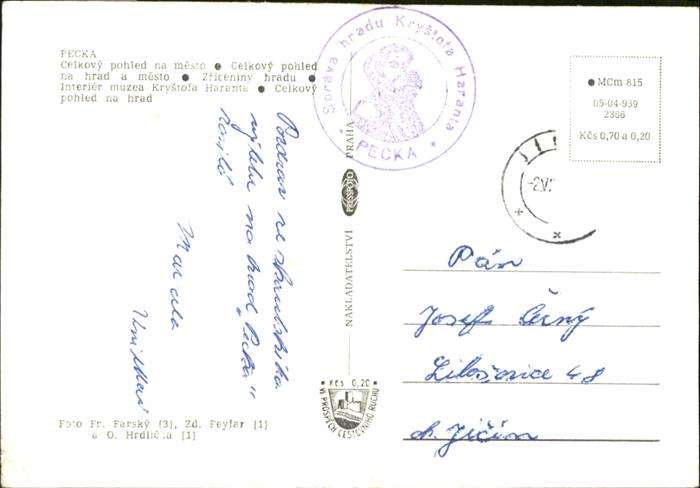 PECKA
Celkový pohled na město ● Celkový pohled
na hrad a město ● Zříceniny hradu ●
Interiér muzea Kryštofa Haranta ● Celkový
pohled na hrad
Správa hradu Kryštofa Haranta
PECKA
● MCm 815
05-04-939
2366
Kčs 0,70 a 0,20
JI
-2.V.
Pozdrav ze
výletu na hrad „Pecka"
Marcela
NAKLADATELSTVÍ
PRESSFOTO
PRAHA
Pán
Josef Černý
48
o. Jičín
Kčs 0,20
VE PROSPĚCH CESTOVNÍHO RUCHU
Foto Fr. Farský (3), Zd. Feyfar (1)
a O. Hrdlička (1)